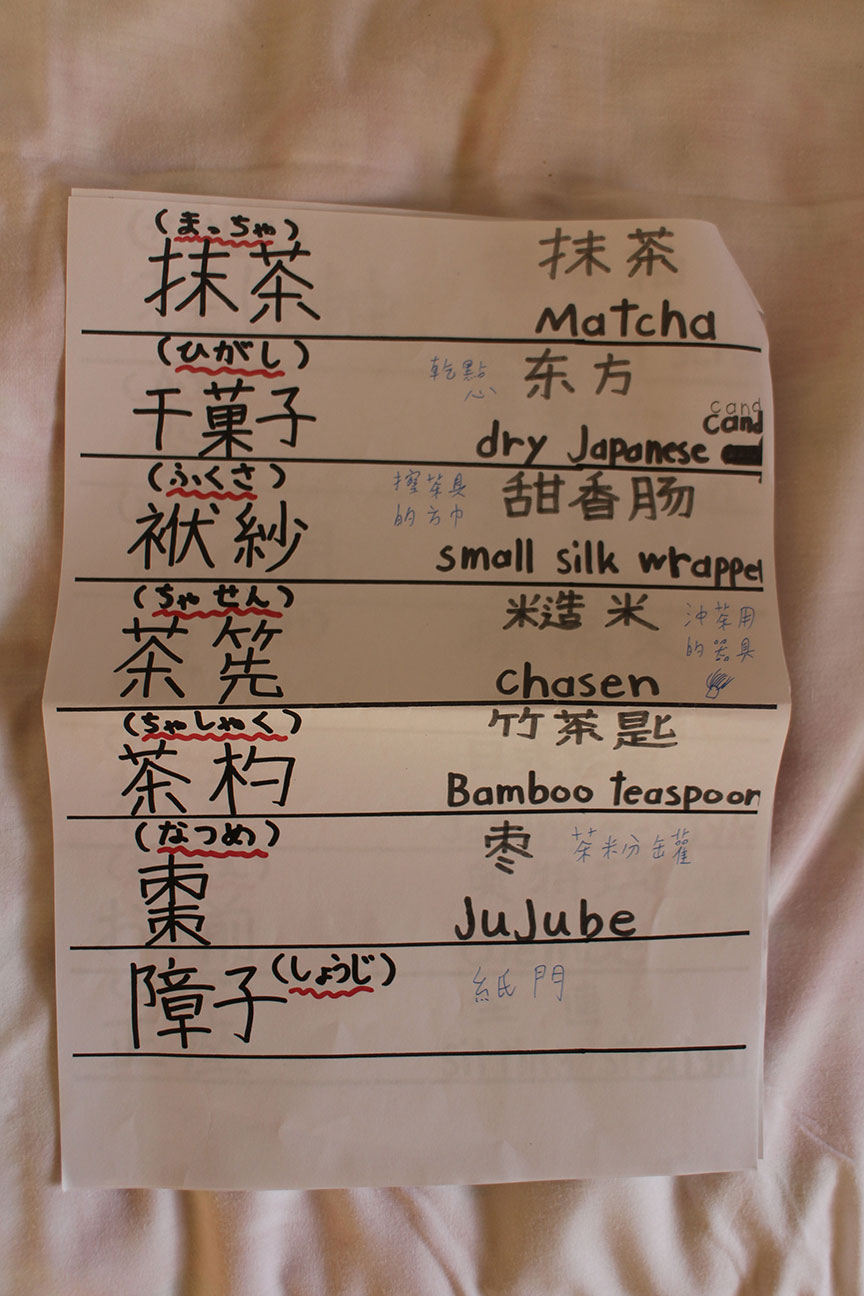 (まっちゃ)
抹茶
抹茶
Matcha
(ひがし)
干菓子
乾點心
东方
cand
cand
dry Japanese
(ふくさ)
袱紗
擦茶具
的方巾
甜香肠
small silk wrapper
(ちゃせん)
茶筅
米造米
冲茶用
的器具
chasen
(ちゃしゃく)
茶杓
竹茶匙
Bamboo teaspoon
(なつめ)
棗
枣
茶粉罐
JuJube
障子(しょうじ)
紙門